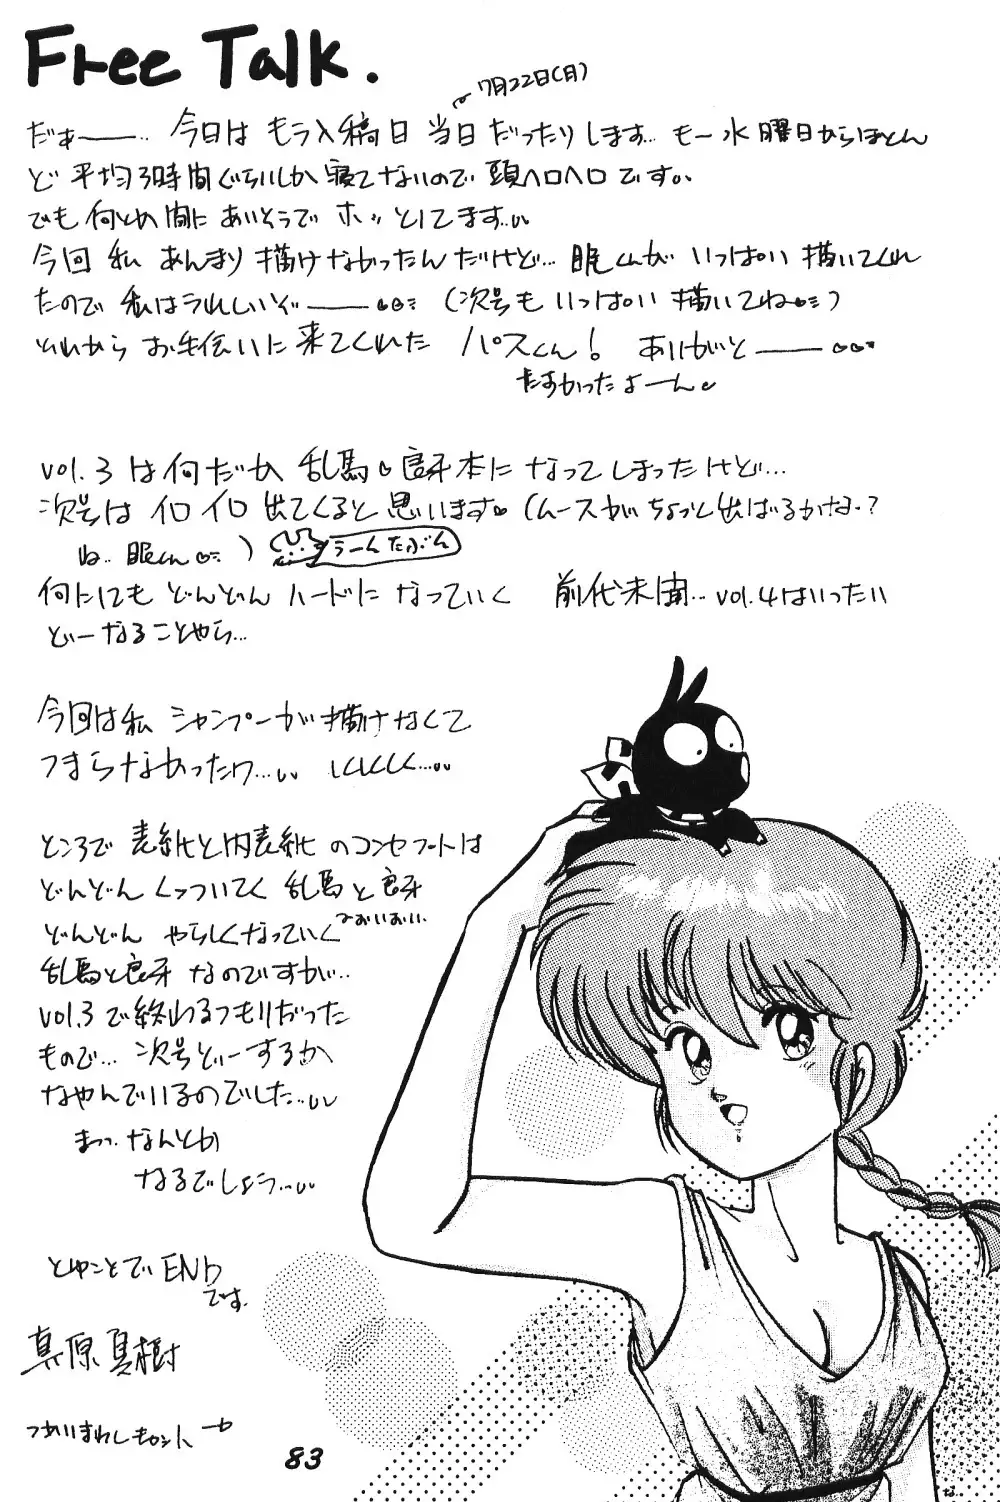 Free Talk.
7月22日(月)
だぁ——… 今日は もう入稿日 当日だったりします… もー水曜日からほとん
ど 平均3時間ぐらいしか 寝てないので 頭ヘロヘロです。。
でも何とか間に あいそうで ホッとしてます。。。
今回 私 あんまり 描けなかったんだけど… 眠くんが いっぱい 描いてくれ
たので 私はうれしいぞ——
(次号も いっぱい 描いてね)
それから お手伝いに 来てくれた パスくん! ありがと——
たすかったよーん
vol.3 は何だか 乱馬 良牙本に なってしまったけど…
次号は イロイロ 出てくると思います (ムースが ちょっと出ばるかな…?
ね.. 眠くん )
うーん たぶん
何にしても どんどん ハードに なっていく 前代未聞… vol.4はいったい
どーなることやら…
今回は私 シャンプーが描けなくて
つまらなかったワ…。。 しくしく…。。
ところで 表紙と内表紙 のコンセプトは
どんどん くっついてく 乱馬と良牙
どんどん やらしくなっていく
おいおい
乱馬と良牙 なのですが..
vol.3で終わるつもりだった
もので… 次号どーするか
なやんでいるのでした…。。
まっ.. なんとか
なるでしょう…。。
とゆことで END
です.
真原真樹
83